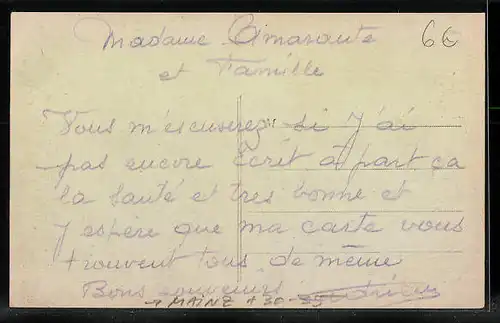 Madame Amarante 66
et Famille
Vous m'escuserez si j'ai
pas encore Écrit à part ça
la santé et très bonne et
j'espère que ma carte vous
trouvent tous de même
Bons souvenirs
→ MAINZ